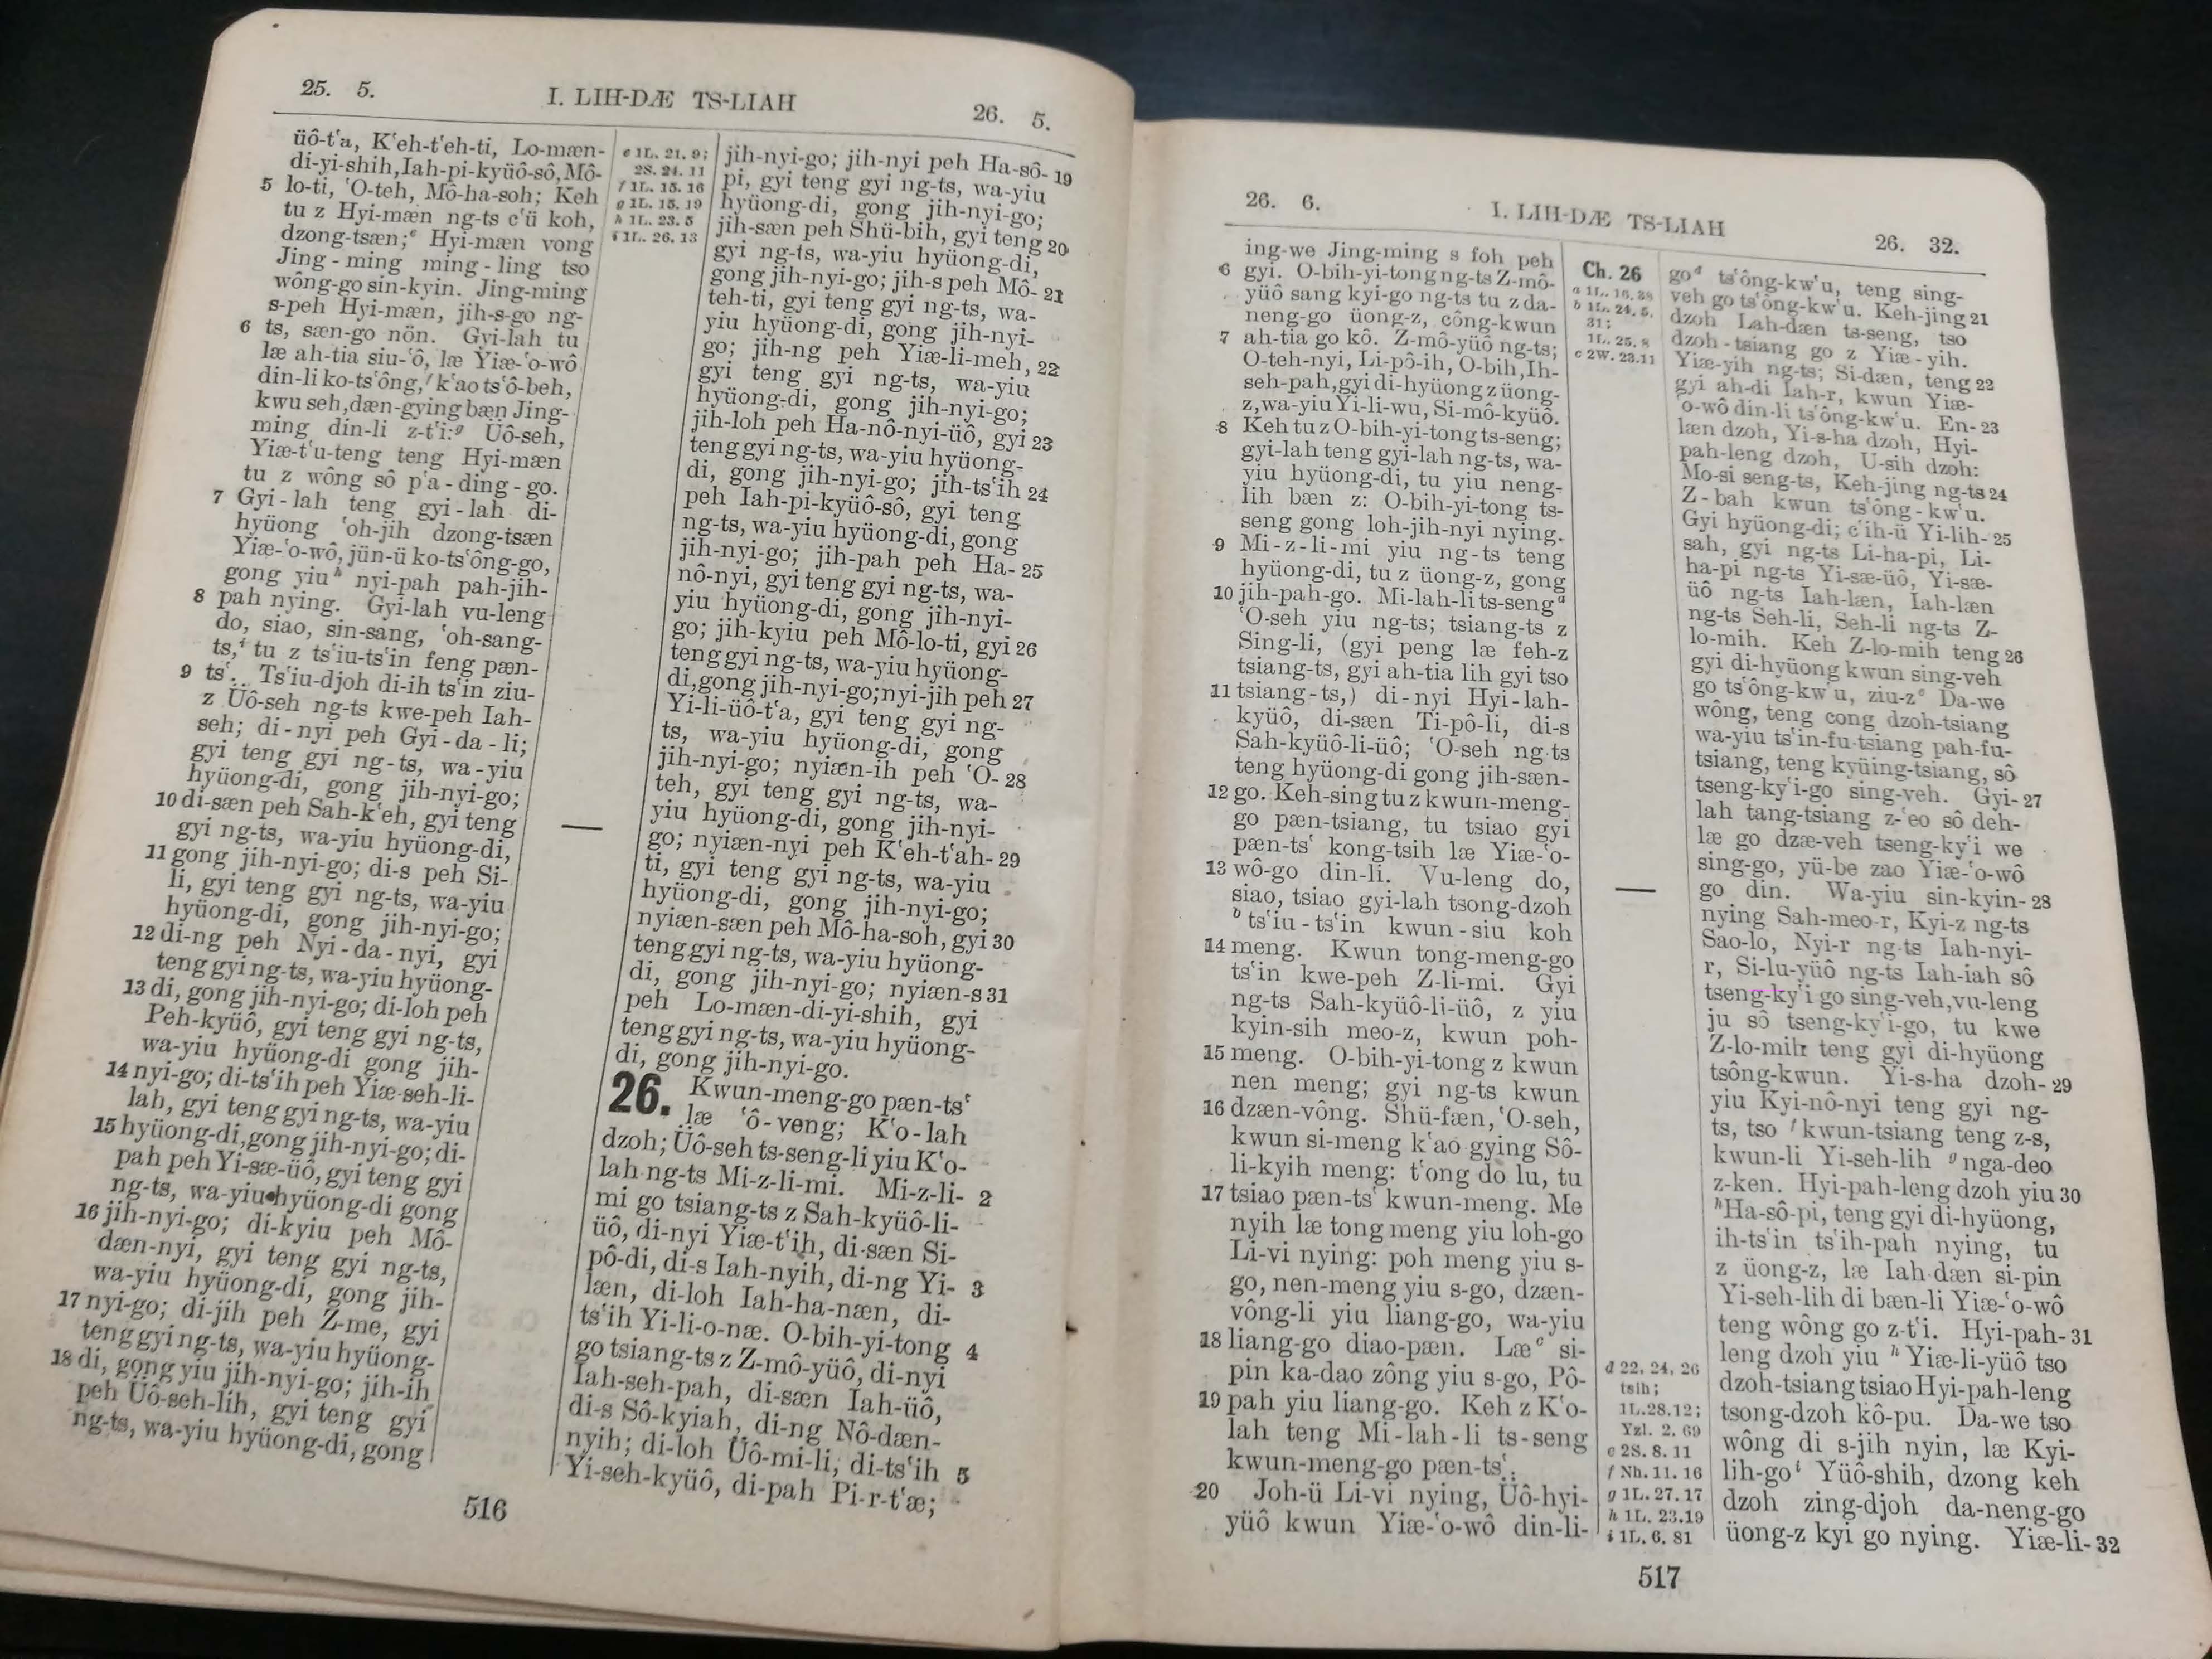 25. 5.
I. LIH-DÆ TS-LIAH
26. 5.
üô-t‘a, K‘eh-t‘eh-ti, Lo-mæn-
di-yi-shih, Iah-pi-kyüô-sô, Mô-
5 lo-ti, ‘O-teh, Mô-ha-soh; Keh
tu z Hyi-mæn ng-ts c‘ü koh,
dzong-tsæn;e Hyi-mæn vong
Jing-ming ming-ling tso
wông-go sin-kyin. Jing-ming
s-peh Hyi-mæn, jih-s-go ng-
6 ts, sæn-go nön. Gyi-lah tu
læ ah-tia siu-‘ô, læ Yiæ-‘o-wô
din-li ko-ts‘ông,f k‘ao ts‘ô-beh,
kwu seh, dæn-gying bæn Jing-
ming din-li z-t‘i:g Üô-seh,
Yiæ-t‘u-teng teng Hyi-mæn
tu z wông sô p‘a-ding-go.
7 Gyi-lah teng gyi-lah di-
hyüong ‘oh-jih dzong-tsæn
Yiæ-‘o-wô, jün-ü ko-ts‘ông-go,
gong yiuh nyi-pah pah-jih-
8 pah nying. Gyi-lah vu-leng
do, siao, sin-sang, ‘oh-sang-
ts,i tu z ts‘iu-ts‘in feng pæn-
9 ts‘. Ts‘iu-djoh di-ih ts‘in ziu-
z Üô-seh ng-ts kwe-peh Iah-
seh; di-nyi peh Gyi-da-li;
gyi teng gyi ng-ts, wa-yiu
hyüong-di, gong jih-nyi-go;
10 di-sæn peh Sah-k‘eh, gyi teng
gyi ng-ts, wa-yiu hyüong-di,
11 gong jih-nyi-go; di-s peh Si-
li, gyi teng gyi ng-ts, wa-yiu
hyüong-di, gong jih-nyi-go;
12 di-ng peh Nyi-da-nyi, gyi
teng gyi ng-ts, wa-yiu hyüong-
13 di, gong jih-nyi-go; di-loh peh
Peh-kyüô, gyi teng gyi ng-ts,
wa-yiu hyüong-di gong jih-
14 nyi-go; di-ts‘ih peh Yiæ-seh-li-
lah, gyi teng gyi ng-ts, wa-yiu
15 hyüong-di, gong jih-nyi-go; di-
pah peh Yi-sæ-üô, gyi teng gyi
ng-ts, wa-yiu hyüong-di gong
16 jih-nyi-go; di-kyiu peh Mô-
dæn-nyi, gyi teng gyi ng-ts,
wa-yiu hyüong-di, gong jih-
17 nyi-go; di-jih peh Z-me, gyi
teng gyi ng-ts, wa-yiu hyüong-
18 di, gong yiu jih-nyi-go; jih-ih
peh Üô-seh-lih, gyi teng gyi
ng-ts, wa-yiu hyüong-di, gong
e 1L. 21. 9;
2S. 24. 11
f 1L. 15. 16
g 1L. 15. 19
h 1L. 23. 5
i 1L. 26. 13
jih-nyi-go; jih-nyi peh Ha-sô- 19
pi, gyi teng gyi ng-ts, wa-yiu
hyüong-di, gong jih-nyi-go;
jih-sæn peh Shü-bih, gyi teng 20
gyi ng-ts, wa-yiu hyüong-di,
gong jih-nyi-go; jih-s peh Mô- 21
teh-ti, gyi teng gyi ng-ts, wa-
yiu hyüong-di, gong jih-nyi-
go; jih-ng peh Yiæ-li-meh, 22
gyi teng gyi ng-ts, wa-yiu
hyüong-di, gong jih-nyi-go;
jih-loh peh Ha-nô-nyi-üô, gyi 23
teng gyi ng-ts, wa-yiu hyüong-
di, gong jih-nyi-go; jih-ts‘ih 24
peh Iah-pi-kyüô-sô, gyi teng
ng-ts, wa-yiu hyüong-di, gong
jih-nyi-go; jih-pah peh Ha- 25
nô-nyi, gyi teng gyi ng-ts, wa-
yiu hyüong-di, gong jih-nyi-
go; jih-kyiu peh Mô-lo-ti, gyi 26
teng gyi ng-ts, wa-yiu hyüong-
di, gong jih-nyi-go; nyi-jih peh 27
Yi-li-üô-t‘a, gyi teng gyi ng-
ts, wa-yiu hyüong-di, gong
jih-nyi-go; nyiæn-ih peh ‘O- 28
teh, gyi teng gyi ng-ts, wa-
yiu hyüong-di, gong jih-nyi-
go; nyiæn-nyi peh K‘eh-t‘ah- 29
ti, gyi teng gyi ng-ts, wa-yiu
hyüong-di, gong jih-nyi-go;
nyiæn-sæn peh Mô-ha-soh, gyi 30
teng gyi ng-ts, wa-yiu hyüong-
di, gong jih-nyi-go; nyiæn-s 31
peh Lo-mæn-di-yi-shih, gyi
teng gyi ng-ts, wa-yiu hyüong-
di, gong jih-nyi-go.
26. Kwun-meng-go pæn-ts‘
læ ‘ô-veng; K‘o-lah
dzoh; Üô-seh ts-seng-li yiu K‘o-
lah ng-ts Mi-z-li-mi. Mi-z-li- 2
mi go tsiang-ts z Sah-kyüô-li-
üô, di-nyi Yiæ-t‘ih, di-sæn Si-
pô-di, di-s Iah-nyih, di-ng Yi- 3
læn, di-loh Iah-ha-næn, di-
ts‘ih Yi-li-o-næ. O-bih-yi-tong 4
go tsiang-ts z Z-mô-yüô, di-nyi
Iah-seh-pah, di-sæn Iah-üô,
di-s Sô-kyiah, di-ng Nô-dæn-
nyih; di-loh Üô-mi-li, di-ts‘ih 5
Yi-seh-kyüô, di-pah Pi-r-t‘æ;
516
26. 6.
I. LIH-DÆ TS-LIAH
26. 32.
ing-we Jing-ming s foh peh
6 gyi. O-bih-yi-tong ng-ts Z-mô-
yüô sang kyi-go ng-ts tu z da-
neng-go üong-z, công-kwun
7 ah-tia go kô. Z-mô-yüô ng-ts;
O-teh-nyi, Li-pô-ih, O-bih, Ih-
seh-pah, gyi di-hyüong z üong-
z, wa-yiu Yi-li-wu, Si-mô-kyüô.
8 Keh tu z O-bih-yi-tong ts-seng;
gyi-lah teng gyi-lah ng-ts, wa-
yiu hyüong-di, tu yiu neng-
lih bæn z: O-bih-yi-tong ts-
seng gong loh-jih-nyi nying.
9 Mi-z-li-mi yiu ng-ts teng
hyüong-di, tu z üong-z, gong
10 jih-pah-go. Mi-lah-li ts-senga
‘O-seh yiu ng-ts; tsiang-ts z
Sing-li, (gyi peng læ feh-z
tsiang-ts, gyi ah-tia lih gyi tso
11 tsiang-ts,) di-nyi Hyi-lah-
kyüô, di-sæn Ti-pô-li, di-s
Sah-kyüô-li-üô; ‘O-seh ng-ts
teng hyüong-di gong jih-sæn-
12 go. Keh-sing tu z kwun-meng-
go pæn-tsiang, tu tsiao gyi
pæn-ts‘ kong-tsih læ Yiæ-‘o-
13 wô-go din-li. Vu-leng do,
siao, tsiao gyi-lah tsong-dzoh
b ts‘iu-ts‘in kwun-siu koh
14 meng. Kwun tong-meng-go
ts‘in kwe-peh Z-li-mi. Gyi
ng-ts Sah-kyüô-li-üô, z yiu
kyin-sih meo-z, kwun poh-
15 meng. O-bih-yi-tong z kwun
nen meng; gyi ng-ts kwun
16 dzæn-vông. Shü-fæn, ‘O-seh,
kwun si-meng k‘ao gying Sô-
li-kyih meng: t‘ong do lu, tu
17 tsiao pæn-ts‘ kwun-meng. Me
nyih læ tong meng yiu loh-go
Li-vi nying: poh meng yiu s-
go, nen-meng yiu s-go, dzæn-
vông-li yiu liang-go, wa-yiu
18 liang-go diao-pæn. Læc si-
pin ka-dao zông yiu s-go, Pô-
19 pah yiu liang-go. Keh z K‘o-
lah teng Mi-lah-li ts-seng
kwun-meng-go pæn-ts‘.
20 Joh-ü Li-vi nying, Üô-hyi-
yüô kwun Yiæ-‘o-wô din-li-
Ch. 26
a 1L. 16. 38
b 1L. 24. 5,
31;
1L. 25. 8
c 2W. 23.11
d 22, 24, 26
tsih;
1L.28.12;
Yzl. 2. 69
e 2S. 8. 11
f Nh. 11. 16
g 1L. 27.17
h 1L. 23.19
i 1L. 6. 81
god ts‘ông-kw‘u, teng sing-
veh go ts‘ông-kw‘u. Keh-jing 21
dzoh Lah-dæn ts-seng, tso
dzoh-tsiang go z Yiæ-yih.
Yiæ-yih ng-ts; Si-dæn, teng 22
gyi ah-di Iah-r, kwun Yiæ-
‘o-wô din-li ts‘ông-kw‘u. En- 23
læn dzoh, Yi-s-ha dzoh, Hyi-
pah-leng dzoh, U-sih dzoh:
Mo-si seng-ts, Keh-jing ng-ts 24
Z-bah kwun ts‘ông-kw‘u.
Gyi hyüong-di; c‘ih-ü Yi-lih- 25
sah, gyi ng-ts Li-ha-pi, Li-
ha-pi ng-ts Yi-sæ-üô, Yi-sæ-
üô ng-ts Iah-læn, Iah-læn
ng-ts Seh-li, Seh-li ng-ts Z-
lo-mih. Keh Z-lo-mih teng 26
gyi di-hyüong kwun sing-veh
go ts‘ông-kw‘u, ziu-ze Da-we
wông, teng cong dzoh-tsiang
wa-yiu ts‘in-fu-tsiang pah-fu-
tsiang, teng kyüing-tsiang, sô
tseng-ky‘i-go sing-veh. Gyi- 27
lah tang-tsiang z-‘eo sô deh-
læ go dzæ-veh tseng-ky‘i we
sing-go, yü-be zao Yiæ-‘o-wô
go din. Wa-yiu sin-kyin- 28
nying Sah-meo-r, Kyi-z ng-ts
Sao-lo, Nyi-r ng-ts Iah-nyi-
r, Si-lu-yüô ng-ts Iah-iah sô
tseng-ky‘i go sing-veh, vu-leng
ju sô tseng-ky‘i-go, tu kwe
Z-lo-mih teng gyi di-hyüong
tsông-kwun. Yi-s-ha dzoh- 29
yiu Kyi-nô-nyi teng gyi ng-
ts, tso f kwun-tsiang teng z-s,
kwun-li Yi-seh-lih g nga-deo
z-ken. Hyi-pah-leng dzoh yiu 30
hHa-sô-pi, teng gyi di-hyüong,
ih-ts‘in ts‘ih-pah nying, tu
z üong-z, læ Iah-dæn si-pin
Yi-seh-lih di bæn-li Yiæ-‘o-wô
teng wông go z-t‘i. Hyi-pah- 31
leng dzoh yiu h Yiæ-li-yüô tso
dzoh-tsiang tsiao Hyi-pah-leng
tsong-dzoh kô-pu. Da-we tso
wông di s-jih nyin, læ Kyi-
lih-goi Yüô-shih, dzong keh
dzoh zing-djoh da-neng-go
üong-z kyi go nying. Yiæ-li- 32
517